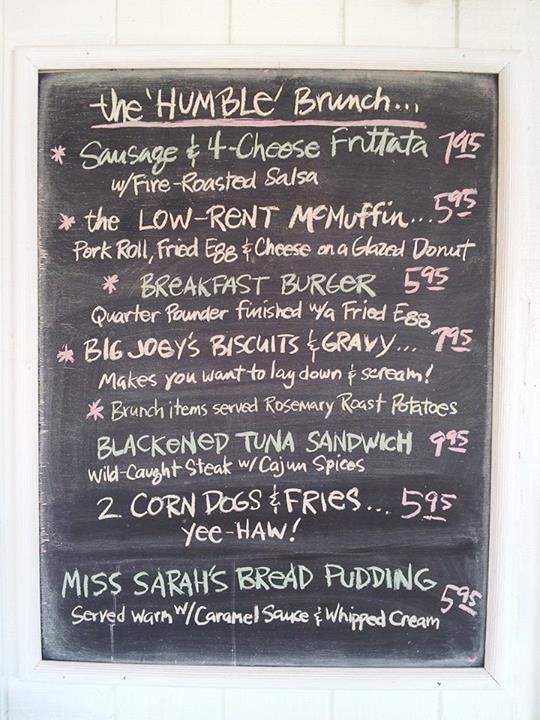 the 'HUMBLE' Brunch...
* Sausage & 4-Cheese Frittata 7.95
w/Fire-Roasted Salsa
* the LOW-RENT McMuffin... 5.95
Pork Roll, Fried Egg & Cheese on a Glazed Donut
* BREAKFAST BURGER 5.95
Quarter Pounder finished w/a Fried Egg
* BIG JOEY'S BISCUITS & GRAVY... 7.95
Makes you want to lay down & scream!
* Brunch items served Rosemary Roast Potatoes
BLACKENED TUNA SANDWICH 9.95
Wild-Caught Steak w/Cajun Spices
2 CORN DOGS & FRIES... 5.95
Yee-HAW!
MISS SARAH'S BREAD PUDDING 5.95
Served warm w/Caramel Sauce & Whipped Cream